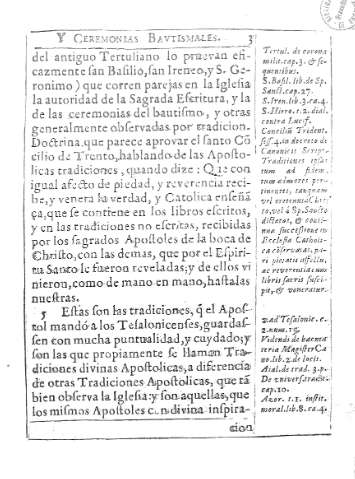 Y CEREMONIAS BAVTISMALES. 3
del antiguo Tertuliano lo prueuan efi
cazmente san Basilio, san Ireneo, y S. Ge-
ronimo) que corren parejas en la Iglesia
la autoridad de la Sagrada Escritura, y la
de las ceremonias del bautismo, y otras
generalmente obseruadas por tradicion.
Doctrina que parece aprouar el santo Cõ
cilio de Trento, hablando de las Aposto-
licas tradiciones, quando dize: Que con
igual afecto de piedad, y reuerencia reci-
be, y venera la verdad, y Catolica enseñã
ça, que se contiene en los libros escritos,
y en las tradiciones no escritas, recibidas
por los sagrados Apostoles de la boca de
Christo, con las demas, que por el Espiri-
tu Santo le fueron reueladas; y de ellos vi
nieron, como de mano en mano, hasta las
nuestras.
5 Estas son las tradiciones, q̃ el Apos-
tol mandó a los Tesalonicenses, guardas-
sen con mucha puntualidad, y cuydado; y
son las que propiamente se llaman Tra-
diciones diuinas Apostolicas, a diferencia
de otras Tradiciones Apostolicas, que tã
bien obserua la Iglesia: y son aquellas, que
los mismos Apostoles con diuina inspira-
cion
Tertul. de corona
milit. cap. 3. & se-
quentibus.
S. Basil. lib. de Sp.
Sanct. cap. 27.
S. Iren. lib. 3. ca. 4.
S. Hiero. t. 2. dial.
contra Lucif.
Concilium Trident.
sess. 4. in decreto de
Canonicis Script.
Traditiones ipsas
tum ad fidem,
tum ad mores per-
tinentes, tanquam
vel oretenus à Chri-
sto, vel à Sp. Sancto
dictatas, & conti-
nua successione in
Ecclesia Catholi-
ca conseruatas, pa-
ri pietatis affectu,
ac reuerentia cum
libris sacris susci-
pit, & veneratur.
2. ad Tesalonic. c.
2. num. 15.
Videndi de hac ma
teria Magister Ca
no lib. 2. de locis.
Aial. de trad. 3. p.
cap. 10.
Azor. t. 1. instit.
moral. lib. 8. ca. 4.